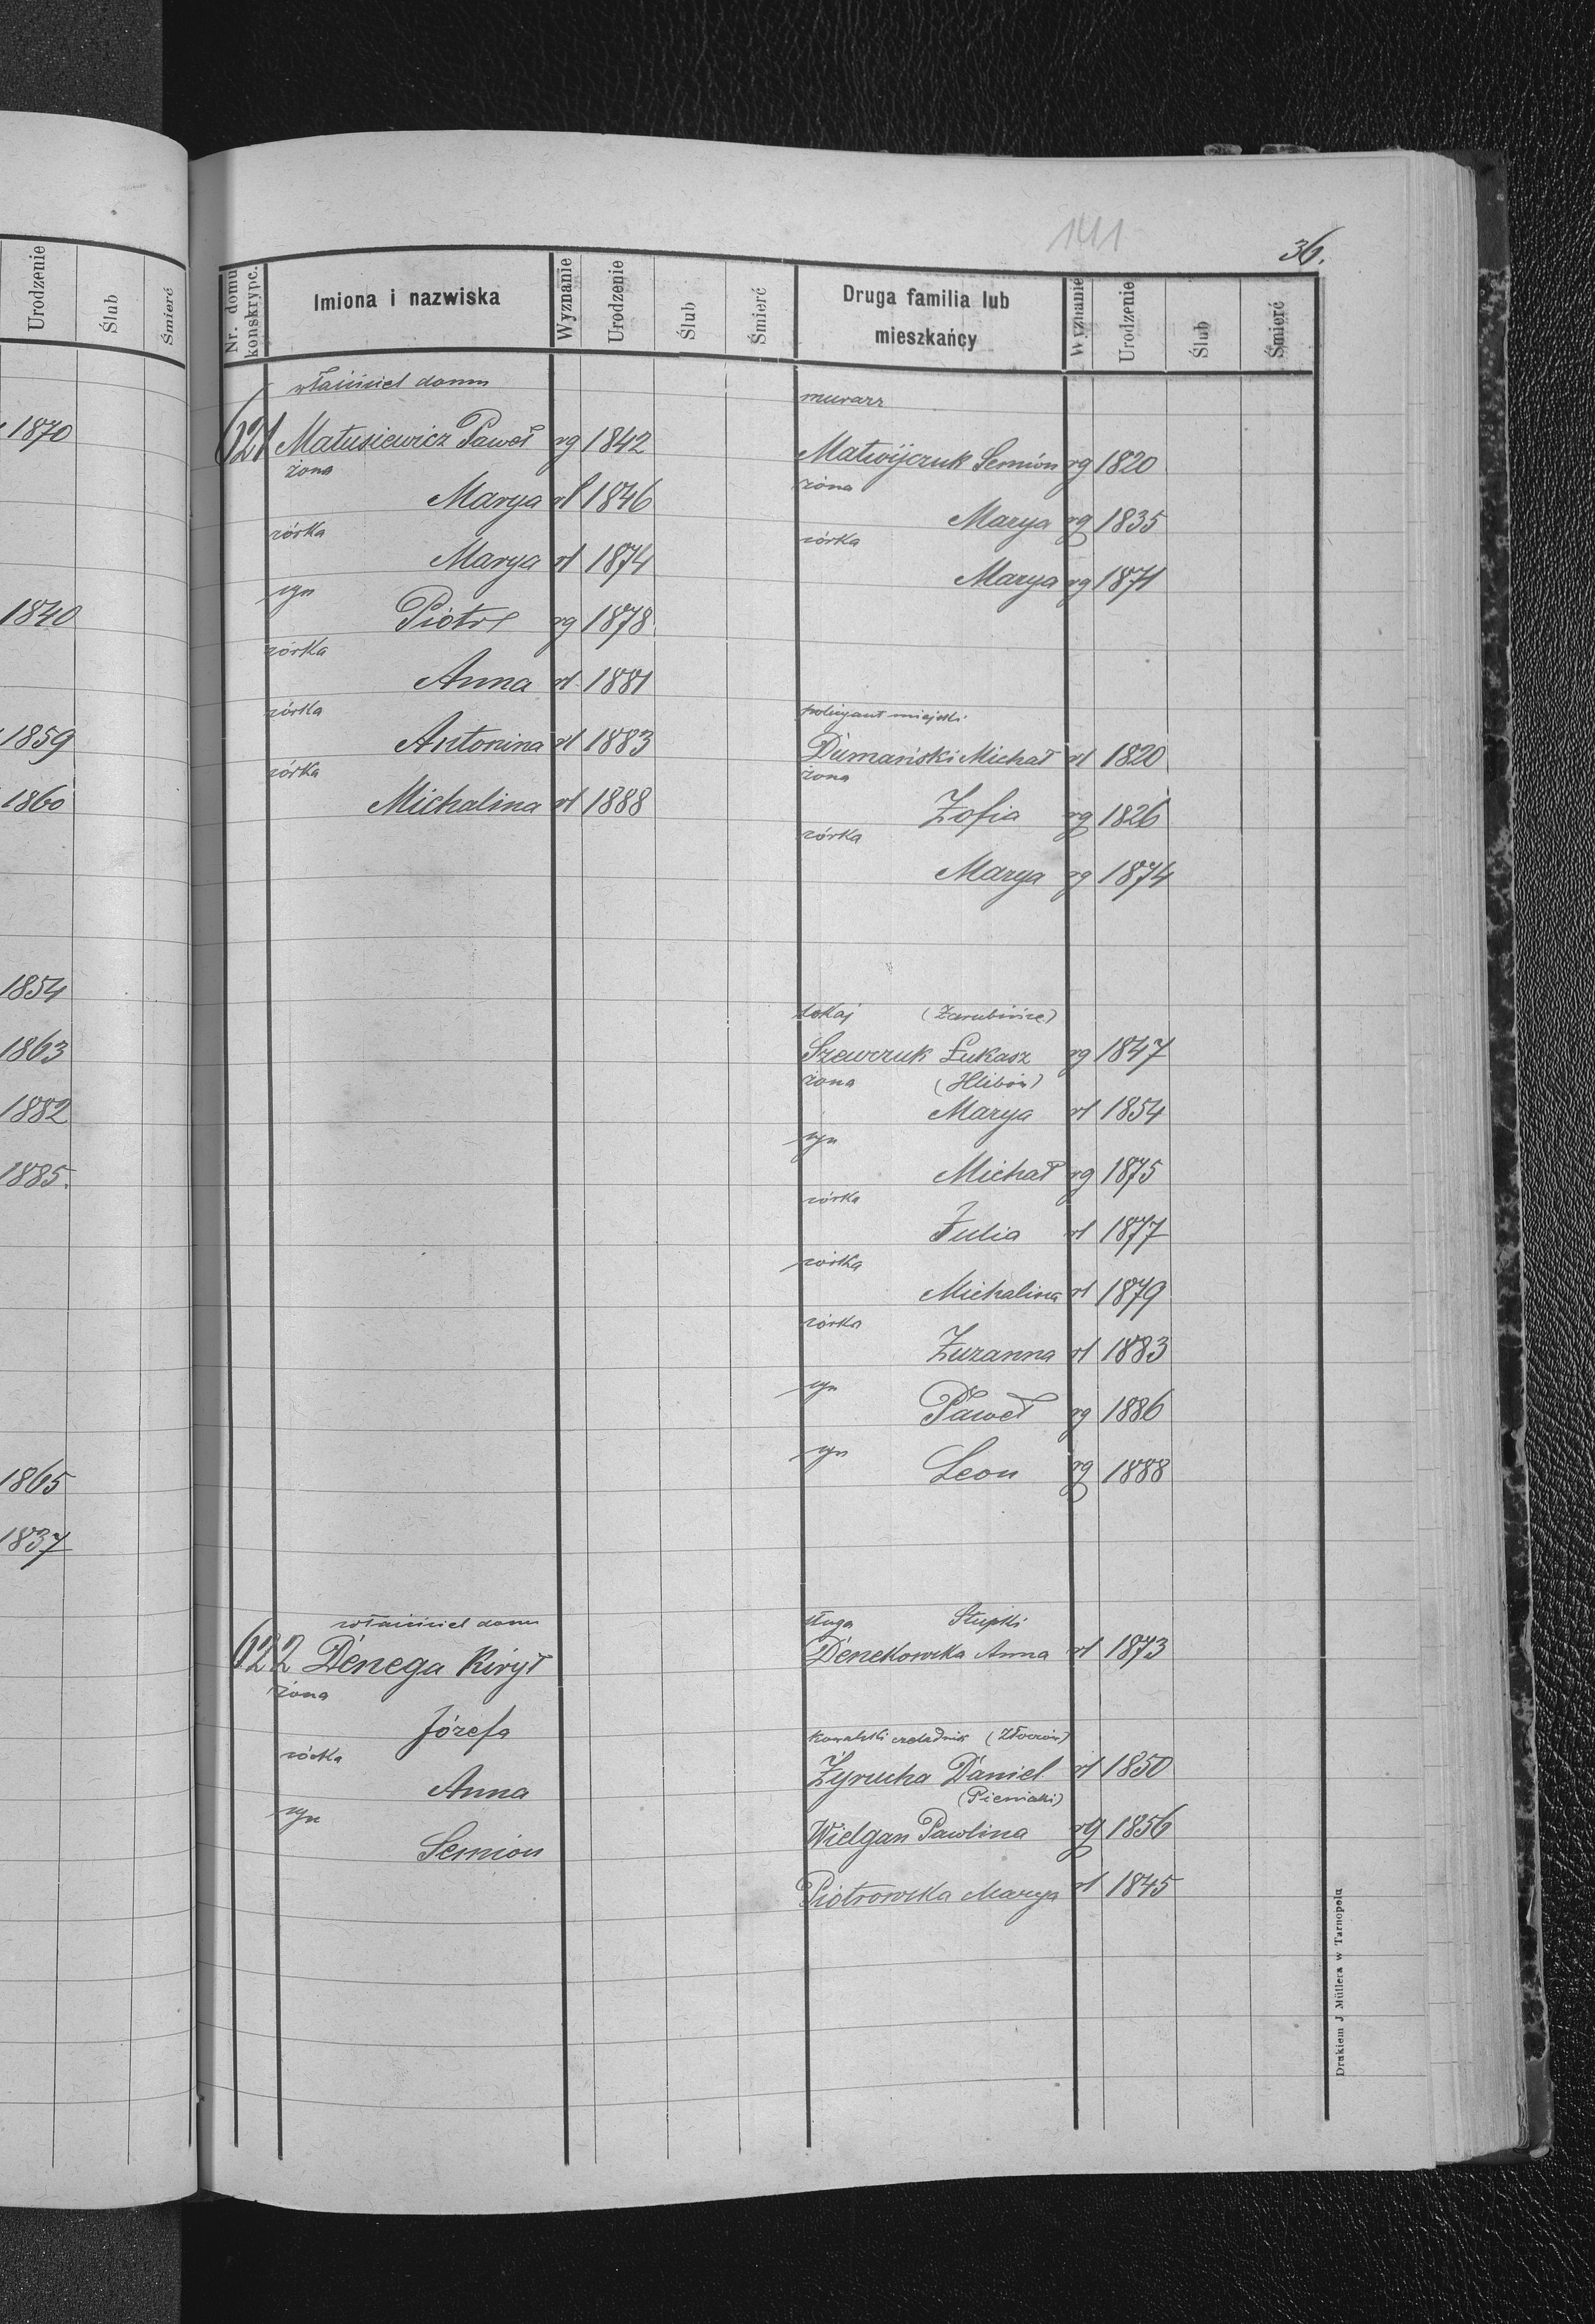 Urodzenie
Ślub
Śmierć
1870
1840
1859
1860
1854
1863
1882
1885.
1865
1837
141
36.
Nr. domu konskrypc.
Imiona i nazwiska
Wyznanie
Urodzenie
Ślub
Śmierć
Druga familia lub mieszkańcy
Wyznanie
Urodzenie
Ślub
Śmierć
właściciel domu
621 Matusiewicz Paweł rg 1842
żona
Marya rł 1846
córka
Marya rł 1874
syn
Piotr rg 1878
córka
Anna rł 1881
córka
Antonina rł 1883
córka
Michalina rł 1888
murarz
Matwijczuk Semion rg 1820
żona
Marya rg 1835
córka
Marya rg 1871
policyant miejski
Dumański Michał rł 1820
żona
Zofia rg 1826
córka
Marya rg 1874
lokaj (Zarubińce)
Szewczuk Łukasz rg 1847
żona (Hlibów)
Marya rł 1854
syn
Michał rg 1875
córka
Julia rł 1877
córka
Michalina rł 1879
córka
Zuzanna rł 1883
syn
Paweł rg 1886
syn
Leon rg 1888
właściciel domu
622 Denega Kirył
żona
Józefa
córka
Anna
syn
Semion
sługa Stupki
Denekowska Anna rł 1873
kowalski czeladnik (Złoczów)
Żyrucha Daniel rł 1850
(Pieniaki)
Wielgan Pawlina rg 1856
Piotrowska Marya rł 1845
Drukiem J Müllera w Tarnopolu